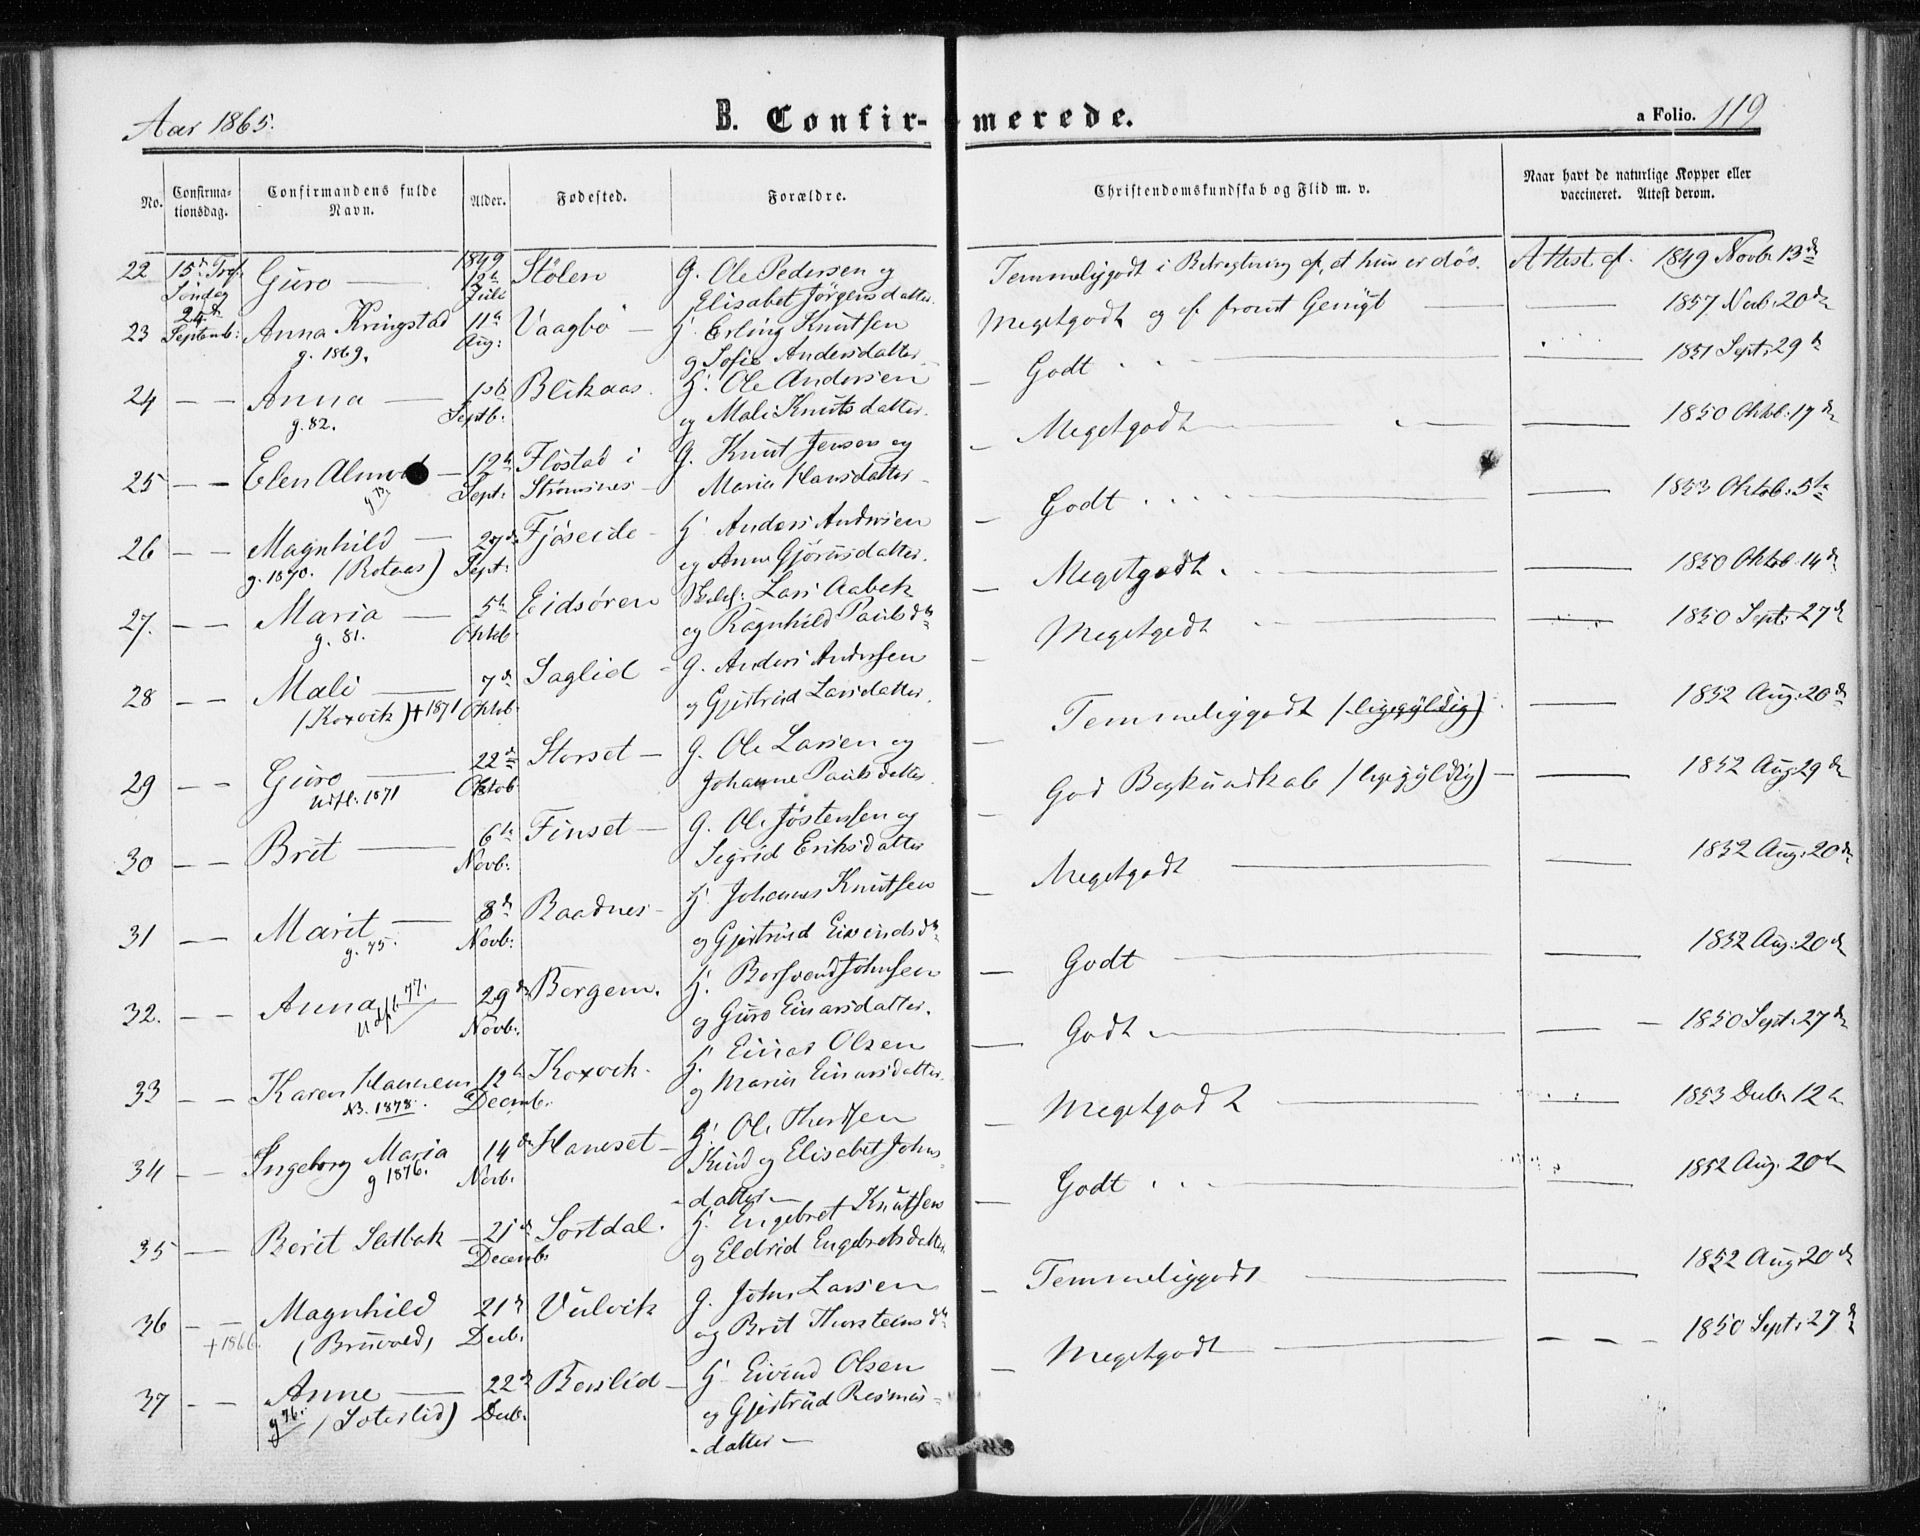 Aar 1865.
B. Confir-merede.
a Folio. 119
No.
Confirma-
tionsdag.
Confirmandens fulde
Navn.
Alder.
Fødested.
Forældre.
Christendomskundskab og Flid m. v.
Naar havt de naturlige Kopper eller
vaccineret. Attest derom.
22 Guro — 1849 12te Juli Stölen G. Ole Pedersen og
15de Søndag
Elisabet Jörgensdatter.
Temmeliggodt i Betragtning af, at hun er døs. Attest af 1849 Novb 13de
24de Septemb:
23 Anna Kringstad 11te Aug: Vaagbø — Erling Knutsen
g. 1869.
og Sofie Andersdatter
Megetgodt og — 1857 20de
24 — — Anna — Septb: Blikaas. Ole Andersen
g. 82.
og Mali Knutsdatter.
Godt — 1851 Sept: 29de
25 — — Elen — 12te Sept: Flöstad i Strömsnes — G. Knut Jensen og
Maria Hansdatter
Megetgodt — 1850 Oktb. 17de
26 — — Magnhild — 27de Sept: Fjöseide — Anders Andersen
g. 1870. (Rotaas)
og Anne
Godt — 1853 Oktob. 5te
27. — — Maria — 5te Oktob Eidsören Lars Aabek
g. 81.
og Ragnhild Paulsdtr
Megetgodt. — 1850 Oktob 14de
28 — — Mali — 7de Oktob. Saglid — G. Anders Andersen
(Koxvik) † 1871
og Gjertrud Larsdatter.
Megetgodt — 1850 Sept: 27de
29 — — Guro — 22de Oktob Storset — G. Ole Larsen og
Udfl. 1871
Johanne Paulsdatter
Temmeliggodt (ligegyldig) — 1852 Aug: 20de
30 — — Brit — 6te Novb: Finset — G. Ole Jöstensen og
Sigrid Eriksdatter
God Begkundskab (ligegyldig) — 1852 Aug: 29de
31 — — Marit — 8de Novb: Baadnes — Johannes Knutsen
g. 75.
og Gjertrud Eivindsdtr
Megetgodt — 1852 Aug: 20de
32. — — Anna — 29de Novb: Bergem. Johnsen
Udfl. 77.
og Guro Einarsdatter.
Godt — 1852 Aug: 20de
33 — — Karen Hannem 12te Decemb. Koxvik. Einar Olsen
NB. 1878.
og Marit Einarsdatter.
Godt — 1850 Sept: 27de
34 — — Ingeborg Maria 14de Novb. Haneset — Ole
g 1876.
og Elisabet Johns-
-datter —
Megetgodt — 1853 Decb. 12te
35 — — Berit Satbak — 21de Decemb. Sortdal. Engebret Knutsen
og Eldrid Engebretsdatter
Godt — 1852 Aug. 20de
36 — — Magnhild 21de Decb. Vulvik G. John Larsen
† 1866. (Bruvold)
og Brit Thorsteinsdtr
Temmeliggodt — 1852 Aug: 20de
37 — — Anne — 22de Decb. Berslid — Eivind Olsen
g 76. (Soterlid)
og Gjertrud Rasmus-
-datter —
Megetgodt — 1850 Sept: 27de